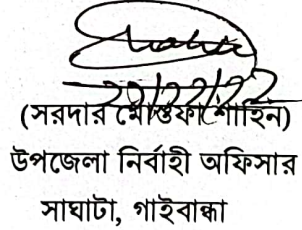 ২০/১১/২২
(সরদার মোস্তফা শাহিন)
উপজেলা নির্বাহী অফিসার
সাঘাটা, গাইবান্ধা